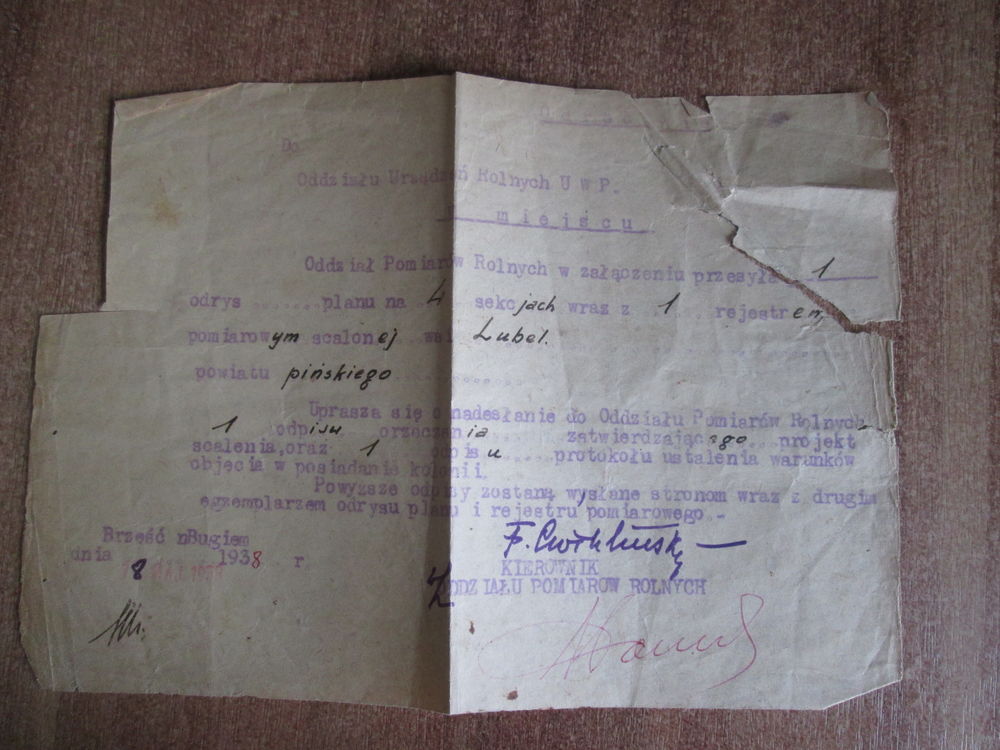 Do
Oddziału Urządzeń Rolnych U W P.
w miejscu
Oddział Pomiarów Rolnych w załączeniu przesyła 1
odrys ....... planu na 4 sekcjach wraz z 1 rejestrem
pomiarowym scalonej wsi Lubel.
powiatu pińskiego
Uprasza się o nadesłanie do Oddziału Pomiarów Rolnych
1 odpisu orzeczenia zatwierdzającego projekt
scalenia, oraz 1 odpisu protokołu ustalenia warunków
objęcia w posiadanie kolonii.
Powyższe odpisy zostaną wysłane stronom wraz z drugim
egzemplarzem odrysu planu i rejestru pomiarowego -
Brześć nBugiem
dnia 8 1938 r
KIEROWNIK
ODDZIAŁU POMIARÓW ROLNYCH